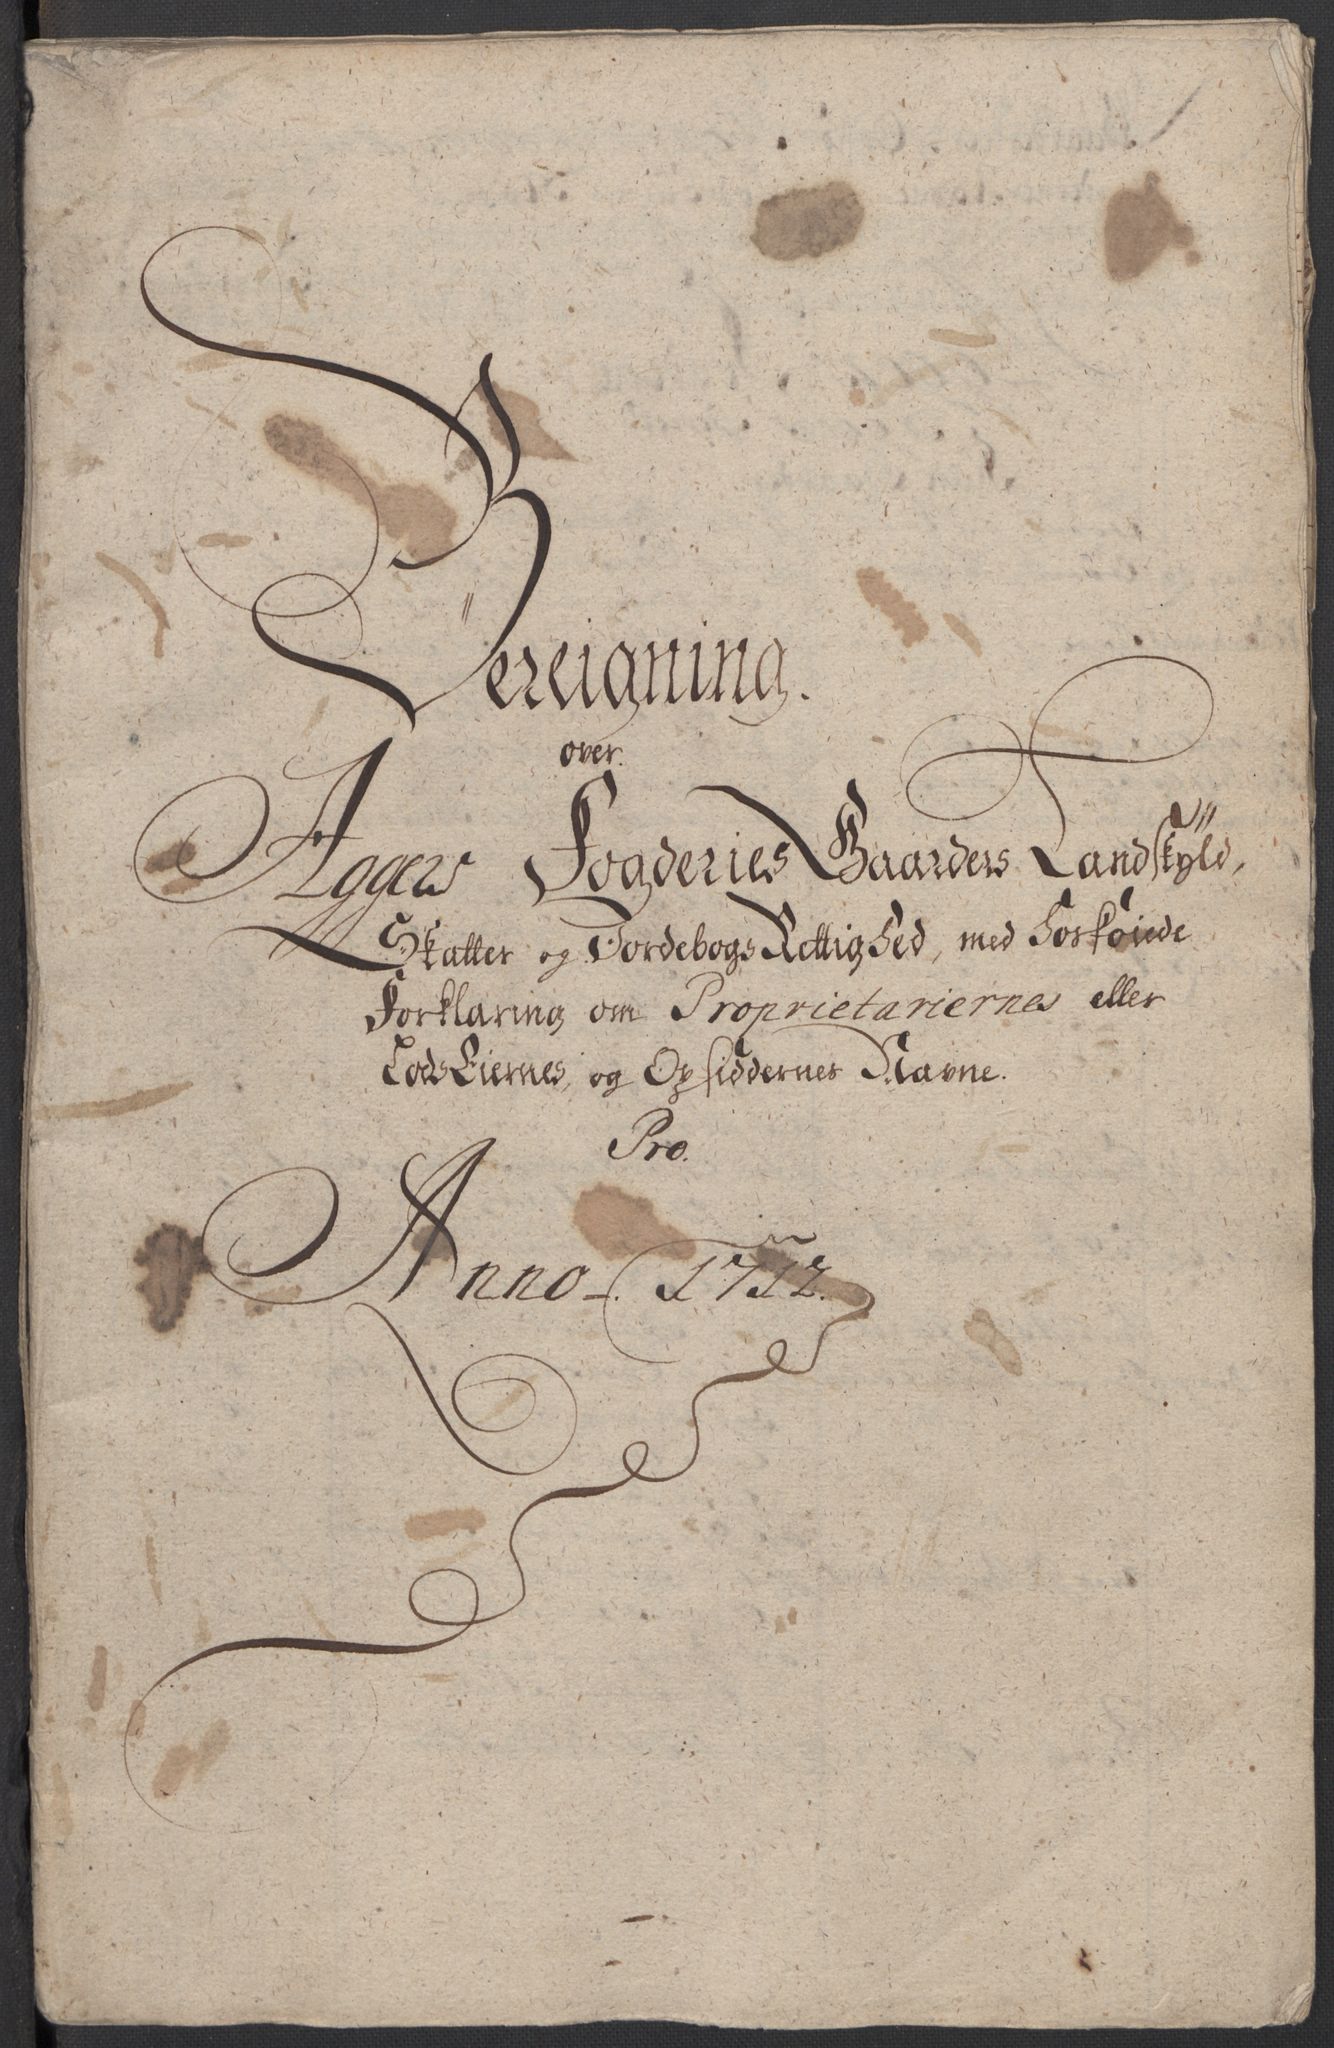 Bereigning.
over.
Aggers Fogderies Gaarders Landskÿld,
Skatter og Jordebogs Rettighed, med hosføiede
Forklaring om Proprietariernes eller
LodsEiernes, og Opsiddernes Navne.
Pro.
Anno. 1712.